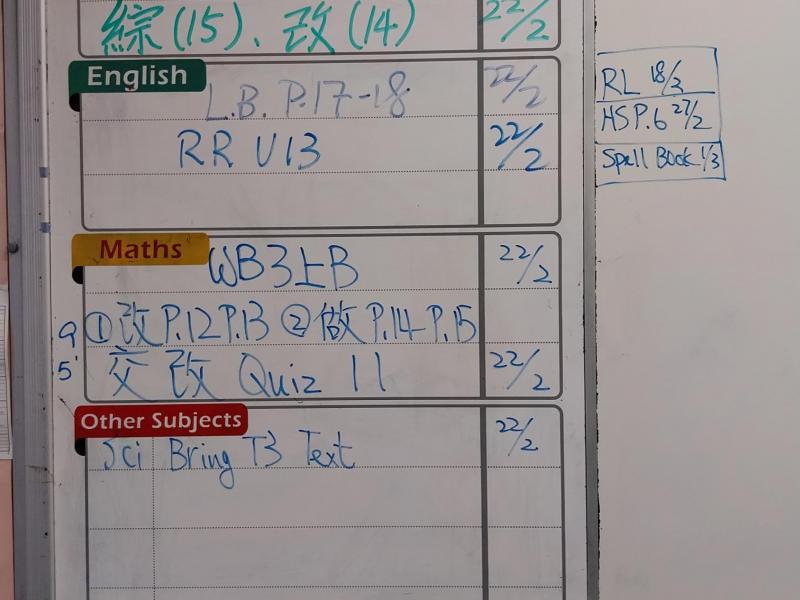 綜(15)、改(14) 22/2
English
L.B. P.17-18 22/2
RR U13 22/2
Maths
WB3上B 22/2
①改P.12P.13 ②做P.14-P.15
交改 Quiz 11 22/2
Other Subjects
Sci Bring T3 Text 22/2
RL 18/2
HSP.6 27/2
Spell Book 1/3